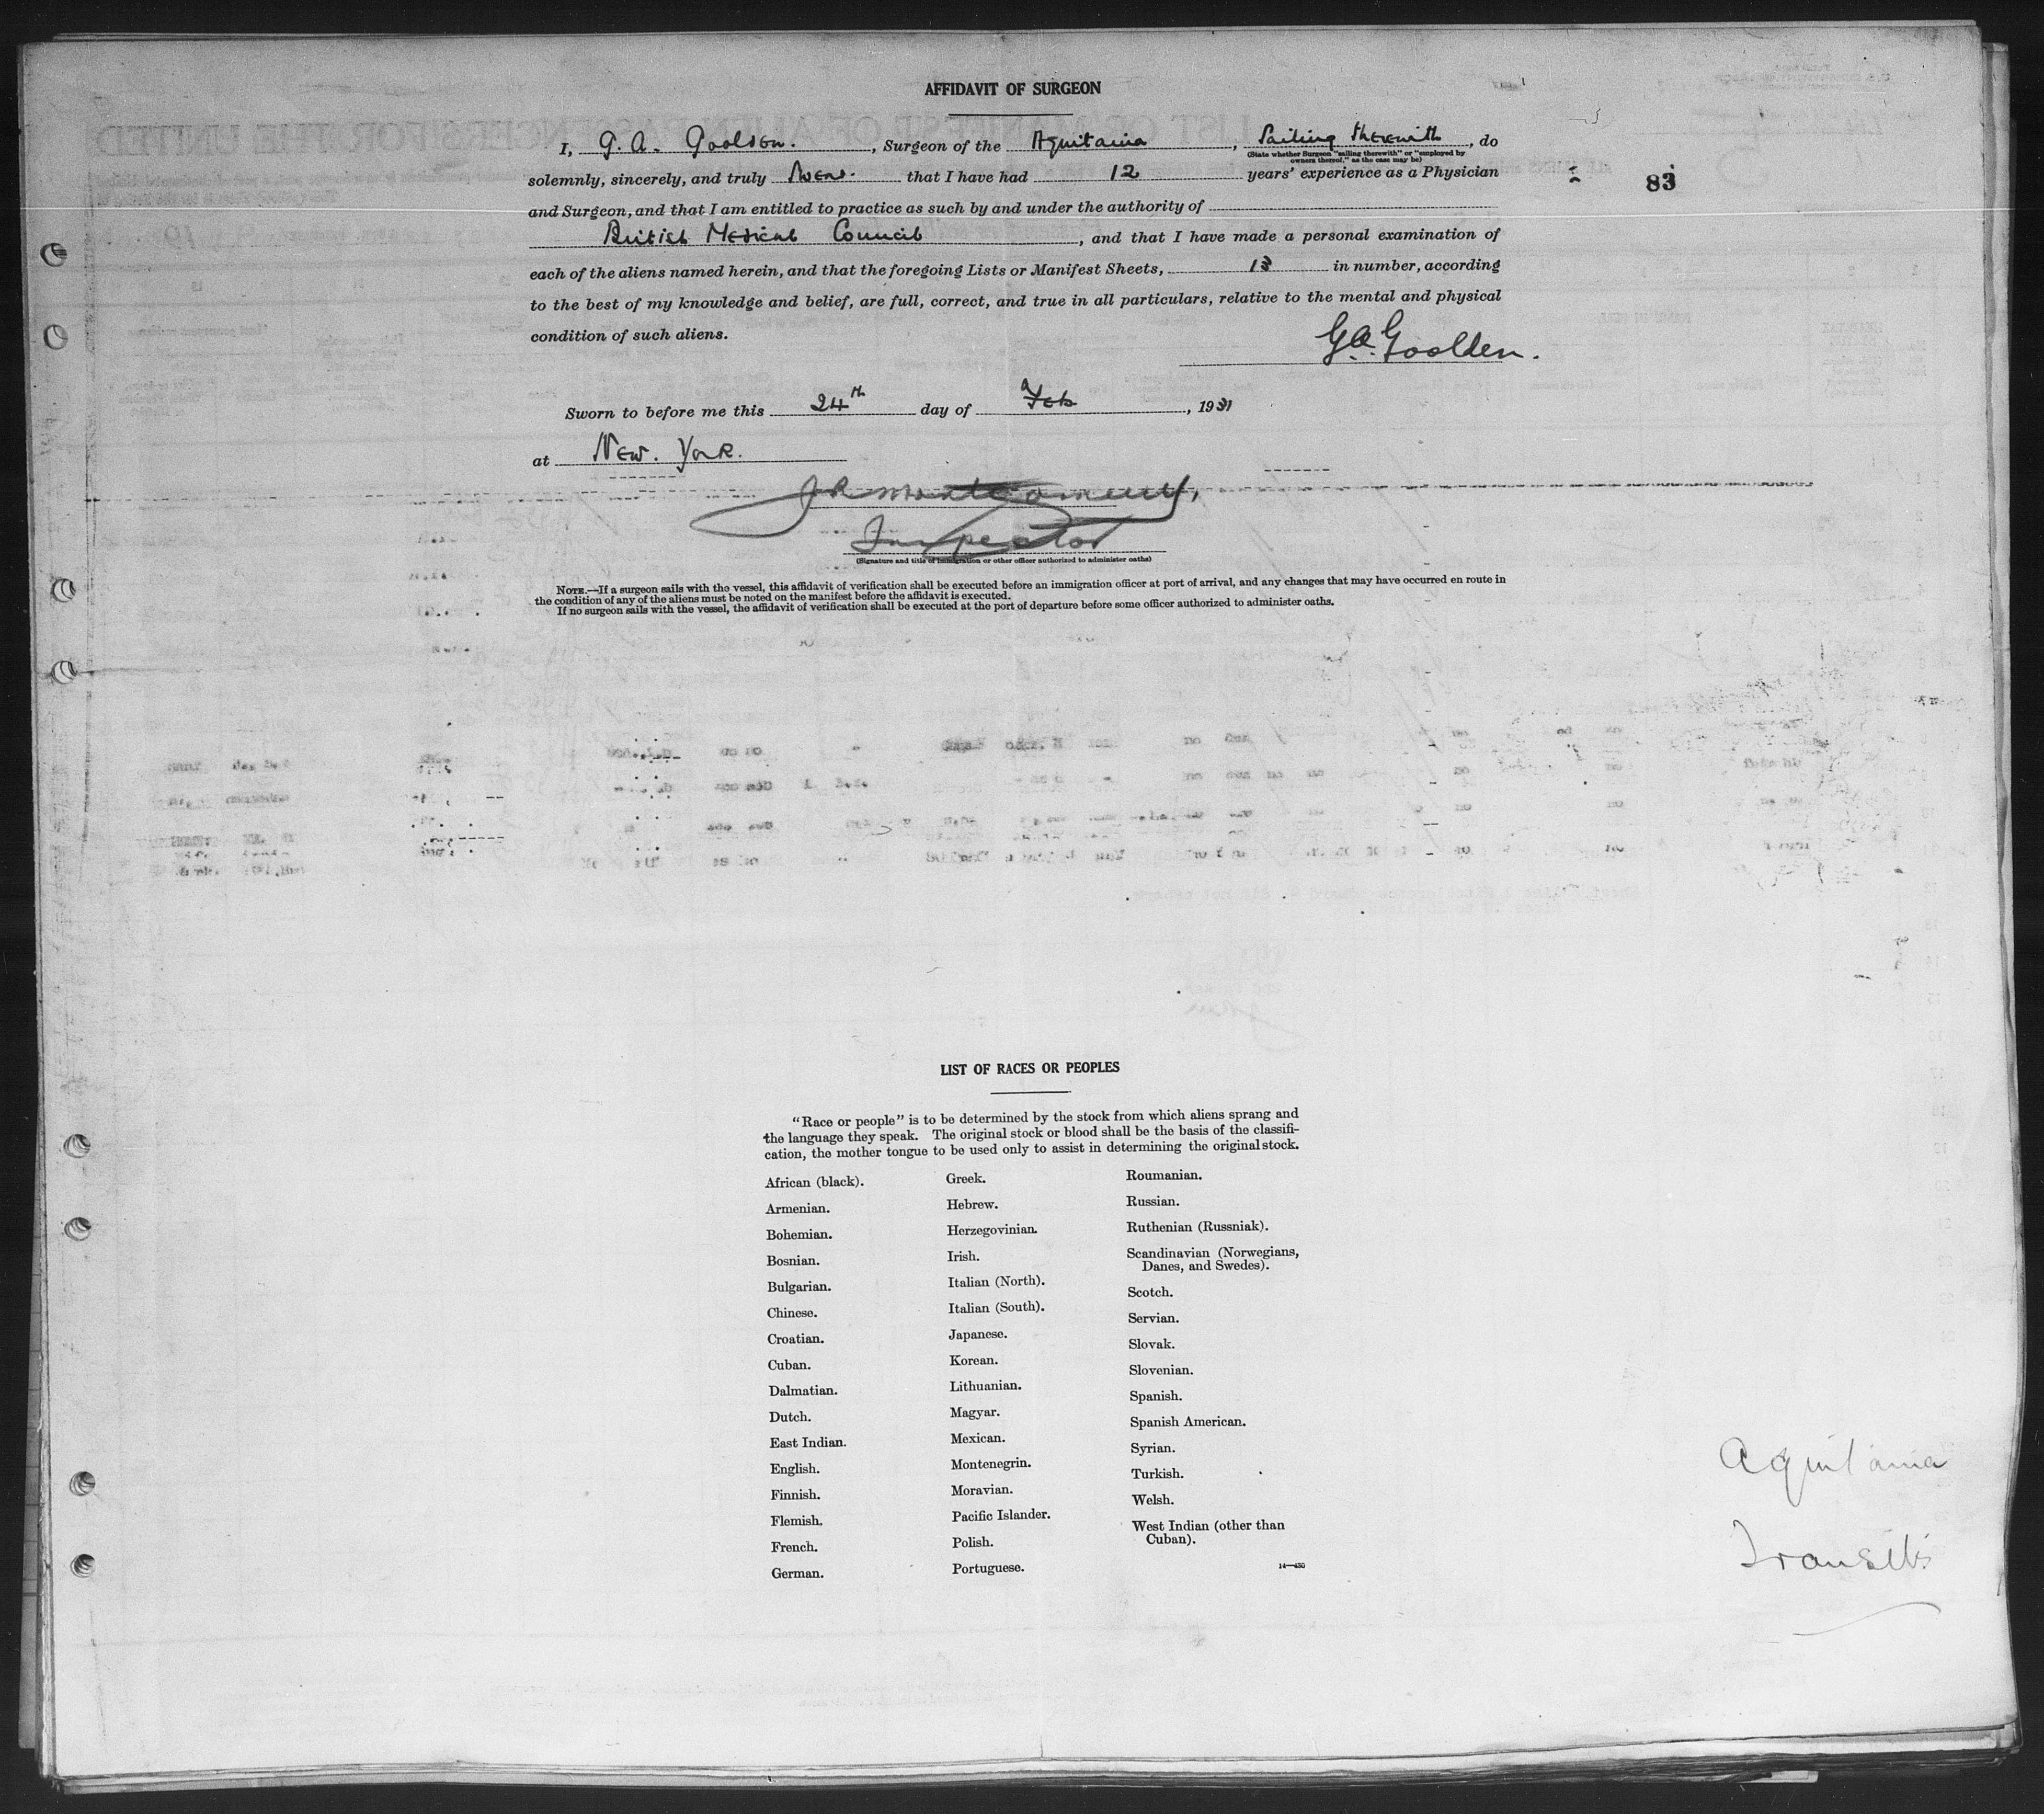 AFFIDAVIT OF SURGEON
I, G. A. Goolden. , Surgeon of the Aquitania , Sailing therewith , do
(State whether Surgeon "sailing therewith" or "employed by
owners thereof," as the case may be)
solemnly, sincerely, and truly Swear. that I have had 12 years' experience as a Physician
83
and Surgeon, and that I am entitled to practice as such by and under the authority of
British Medical Council , and that I have made a personal examination of
each of the aliens named herein, and that the foregoing Lists or Manifest Sheets, 13 in number, according
to the best of my knowledge and belief, are full, correct, and true in all particulars, relative to the mental and physical
condition of such aliens.
G.A. Goolden.
Sworn to before me this 24th day of Feb , 1931
at New. York.
J R Montgomery,
Inspector
(Signature and title of immigration or other officer authorized to administer oaths)
NOTE.—If a surgeon sails with the vessel, this affidavit of verification shall be executed before an immigration officer at port of arrival, and any changes that may have occurred en route in
the condition of any of the aliens must be noted on the manifest before the affidavit is executed.
If no surgeon sails with the vessel, the affidavit of verification shall be executed at the port of departure before some officer authorized to administer oaths.
LIST OF RACES OR PEOPLES
"Race or people" is to be determined by the stock from which aliens sprang and
the language they speak. The original stock or blood shall be the basis of the classifi-
cation, the mother tongue to be used only to assist in determining the original stock.
African (black).
Armenian.
Bohemian.
Bosnian.
Bulgarian.
Chinese.
Croatian.
Cuban.
Dalmatian.
Dutch.
East Indian.
English.
Finnish.
Flemish.
French.
German.
Greek.
Hebrew.
Herzegovinian.
Irish.
Italian (North).
Italian (South).
Japanese.
Korean.
Lithuanian.
Magyar.
Mexican.
Montenegrin.
Moravian.
Pacific Islander.
Polish.
Portuguese.
Roumanian.
Russian.
Ruthenian (Russniak).
Scandinavian (Norwegians,
Danes, and Swedes).
Scotch.
Servian.
Slovak.
Slovenian.
Spanish.
Spanish American.
Syrian.
Turkish.
Welsh.
West Indian (other than
Cuban).
14—430
Aquitania
Transits